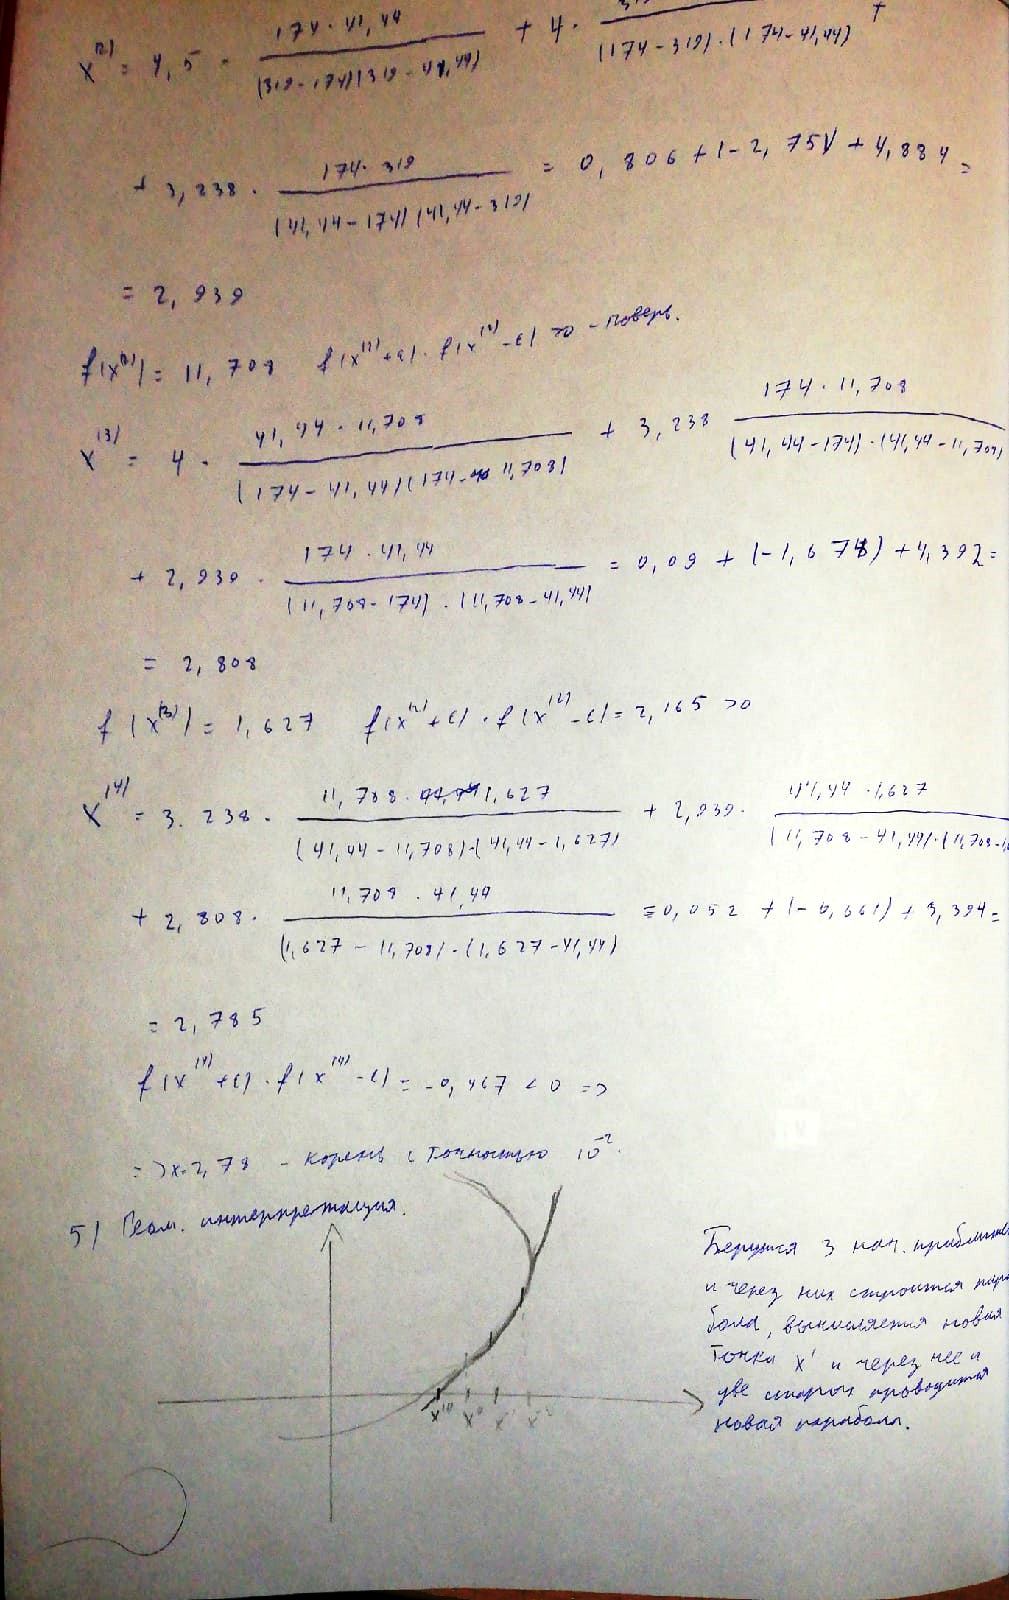 x⁽²⁾ = 4,5 · (174 · 41,44) / ((319-174)(319-41,44)) + 4 · / ((174-319)·(174-41,44)) +
+ 3,238 · (174·319) / ((41,44-174)(41,44-319)) = 0,806 + (-2,751) + 4,884 =
= 2,939
f(x⁽²⁾) = 11,708 f(x⁽²⁾+ε) · f(x⁽²⁾-ε) >0 -
x⁽³⁾ = 4 · (41,44 · 11,708) / ((174-41,44)(174-11,708)) + 3,238 (174 · 11,708) / ((41,44-174)·(41,44-11,708)
+ 2,939 · (174 · 41,44) / ((11,708-174)·(11,708-41,44)) = 0,09 + (-1,678) + 4,392 =
= 2,808
f(x⁽³⁾) = 1,627 f(x⁽²⁾+ε) · f(x⁽²⁾-ε) = 2,165 >0
x⁽⁴⁾ = 3.238 · (11,708 · 1,627) / ((41,44-11,708)·(41,44-1,627)) + 2,939 · (41,44 · 1,627) / ((11,708-41,44)·(11,708-1,6
+ 2,808 · (11,708 · 41,44) / ((1,627-11,708)·(1,627-41,44)) = 0,052 + (-0,661) + 3,394 =
= 2,785
f(x⁽⁴⁾+ε) · f(x⁽⁴⁾-ε) = -0,467 < 0 =>
=> x=2,78 - корень с точностью 10⁻².
5) Геом. интерпретация.
Берутся 3 нач. приближе
и через них строится пара
бола, вычисляется новая
точка x' и через нее и
две старых проводится
новая парабола.